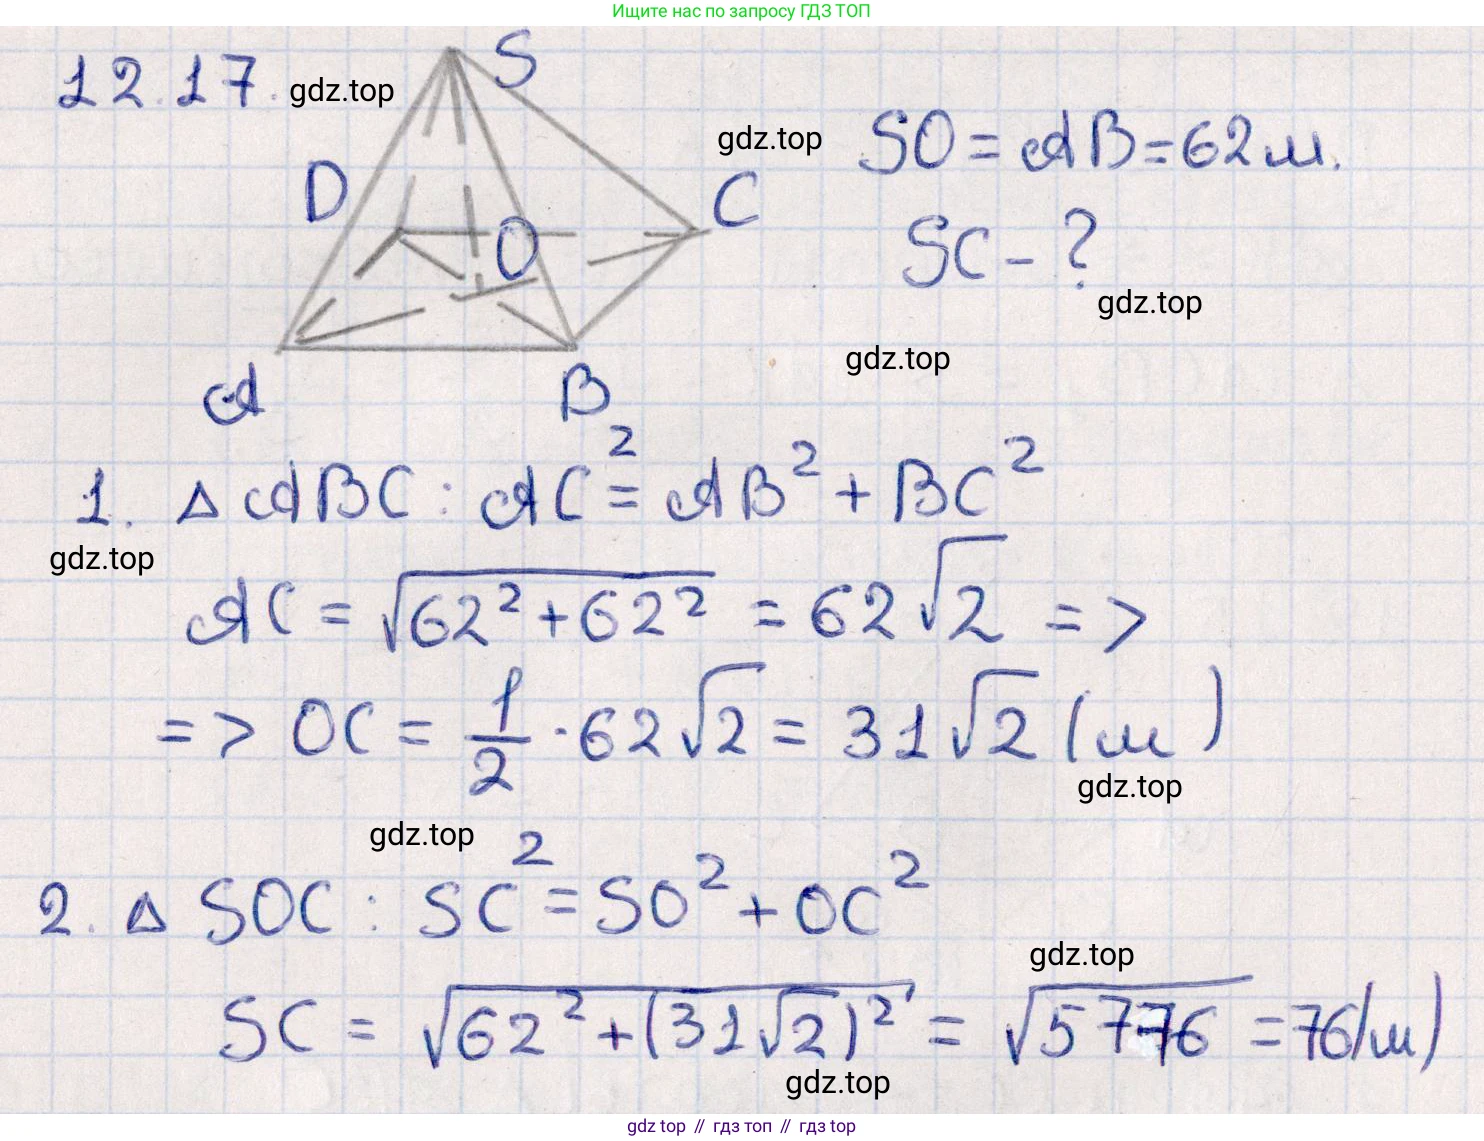 Ищите нас по запросу ГДЗ ТОП
12.17.
gdz.top
S
gdz.top
SO = AB = 62 м.
D
C
O
SC - ?
gdz.top
gdz.top
A
B
1. △ ABC : AC² = AB² + BC²
gdz.top
AC = √(62² + 62²) = 62√2 =>
=> OC = 1/2 · 62√2 = 31√2 (м)
gdz.top
gdz.top
2. △ SOC : SC² = SO² + OC²
gdz.top
SC = √(62² + (31√2)²) = √5776 = 76 (м)
gdz.top
gdz top // гдз топ // гдз top